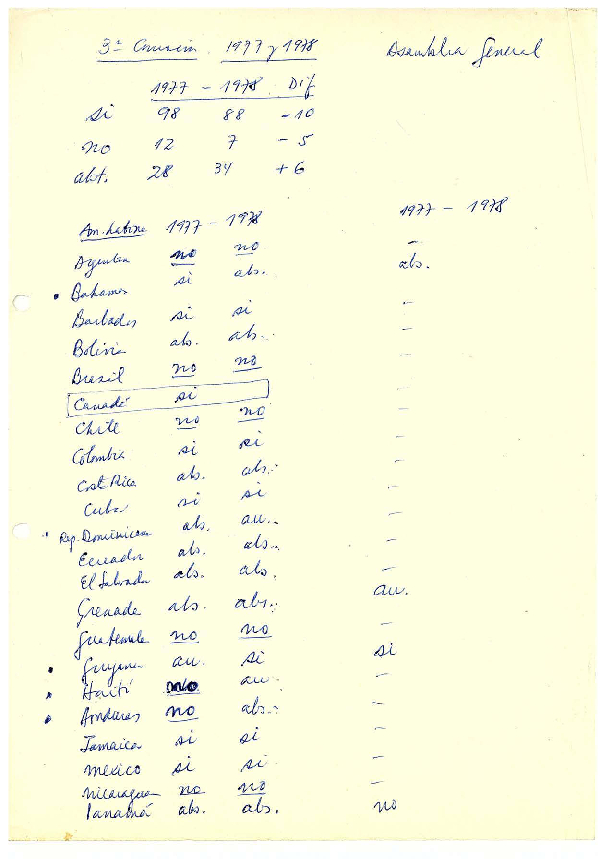 3ª Comisión. 1977 y 1978 Asamblea General
1977 - 1978 Dif
si 98 88 - 10
no 12 7 - 5
abt. 28 34 + 6
Am. Latina 1977 - 1978 1977 - 1978
Argentina no no -
• Bahamas si abs. abs.
Barbados si si -
Bolivia abs. abs. -
Brasil no no -
Canadá si
Chile no no -
Colombia si si -
Costa Rica abs. abs. -
Cuba si si -
• Rep. Dominicana abs. au. -
Ecuador abs. abs. -
El Salvador abs. abs. -
Grenade abs. abs. au.
Guatemala no no -
• Guyana au. si si
• Haití no au. -
• Honduras no abs. -
Jamaica si si -
Mexico si si -
Nicaragua no no -
Panamá abs. abs. no